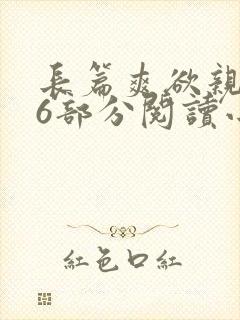 長篇爽欲親
6部分閱讀
紅色口紅